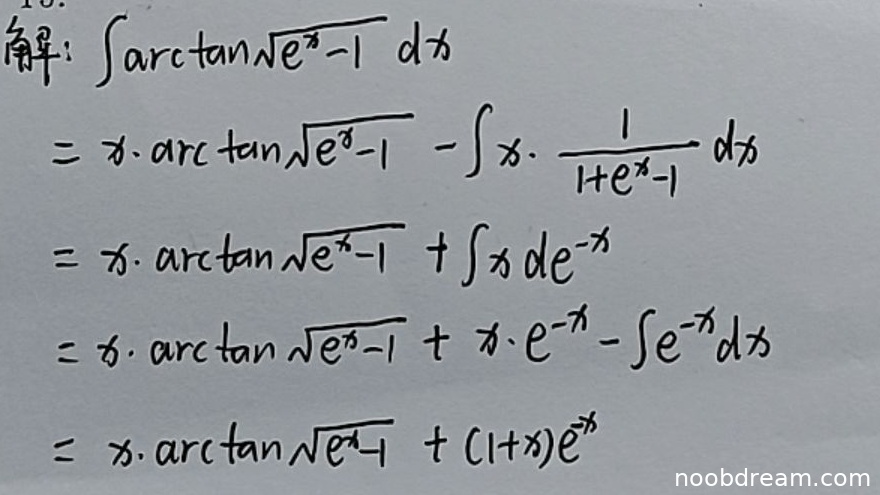 解: ∫arctan√(eˣ-1) dx
= x·arctan√(eˣ-1) - ∫x· 1/(1+eˣ-1) dx
= x·arctan√(eˣ-1) + ∫x de⁻ˣ
= x·arctan√(eˣ-1) + x·e⁻ˣ - ∫e⁻ˣdx
= x·arctan√(eˣ-1) + (1+x)e⁻ˣ
noobdream.com